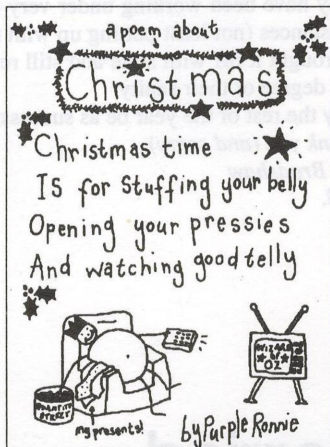 a poem about
Christmas
Christmas time
IS for Stuffing your belly
Opening your pressies
And watching good telly
QUALITY
STREET
my presents!
WIZARD
OF
OZ
by Purple Ronnie